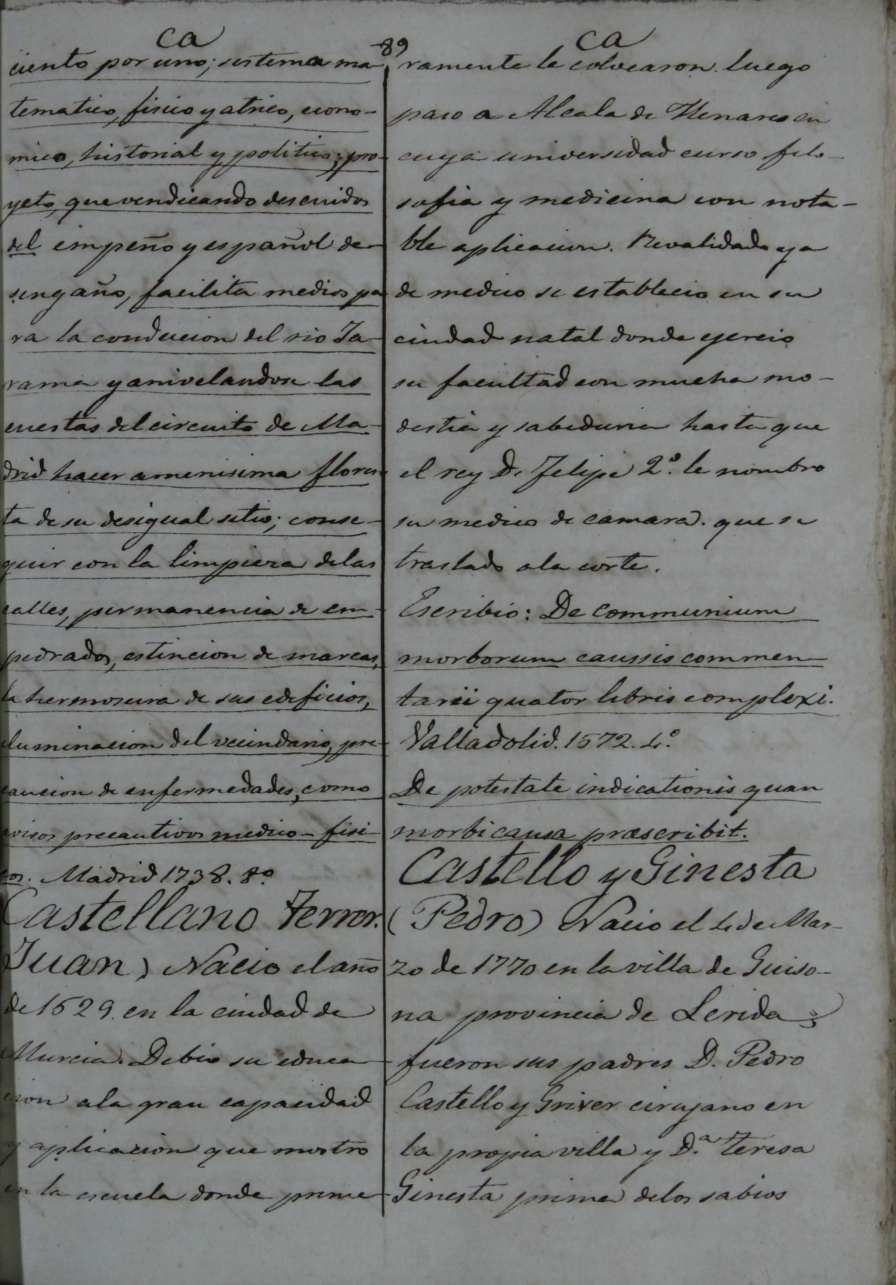 ca
89
ca
ciento por uno; sistema ma-
tematico, fisico y atrico, econo-
mico, historial y politico; pro-
yeto, que vendicando descuidos
del empeño y español de-
sengaño, facilita medios pa
ra la conducion del rio Ja-
rama y anivelandose las
cuestas del circuito de Ma-
drid hacer amenisima flores-
ta de su desigual sitio; conse-
guir con la limpieza de las
calles, permanencia de em-
pedrados, estincion de mareas,
la hermosura de sus edificios,
iluminacion del vecindario, pre-
caucion de enfermedades, como
avisos precautivos medico-fisi-
cos. Madrid 1738. 8º
Castellano Ferrer.
Juan) Nacio el año
de 1529. en la ciudad de
Murcia. Debio su educa-
cion a la gran capacidad
y aplicacion que mostro
en la escuela donde prime-
ramente le colocaron. luego
paso a Alcala de Henares en
cuya universidad curso filo-
sofia y medicina con nota-
ble aplicacion. Revalidado ya
de medico se establecio en su
ciudad natal donde ejercio
su facultad con mucha mo-
destia y sabiduria hasta que
el rey D. Felipe 2º. le nombro
su medico de camara. que se
traslado a la corte.
Escribio: De communium
morborum caussis commen-
tarii quator libris complexi.
Valladolid. 1572. 4º
De potestate indicationis quam
morbi causa præscribit.
Castello y Ginesta
(Pedro) Nacio el 4 de Mar-
zo de 1770 en la villa de Guiso-
na provincia de Lerida;
fueron sus padres D. Pedro
Castello y Griver cirujano en
la propia villa y D.ª Teresa
Ginesta prima de los sabios